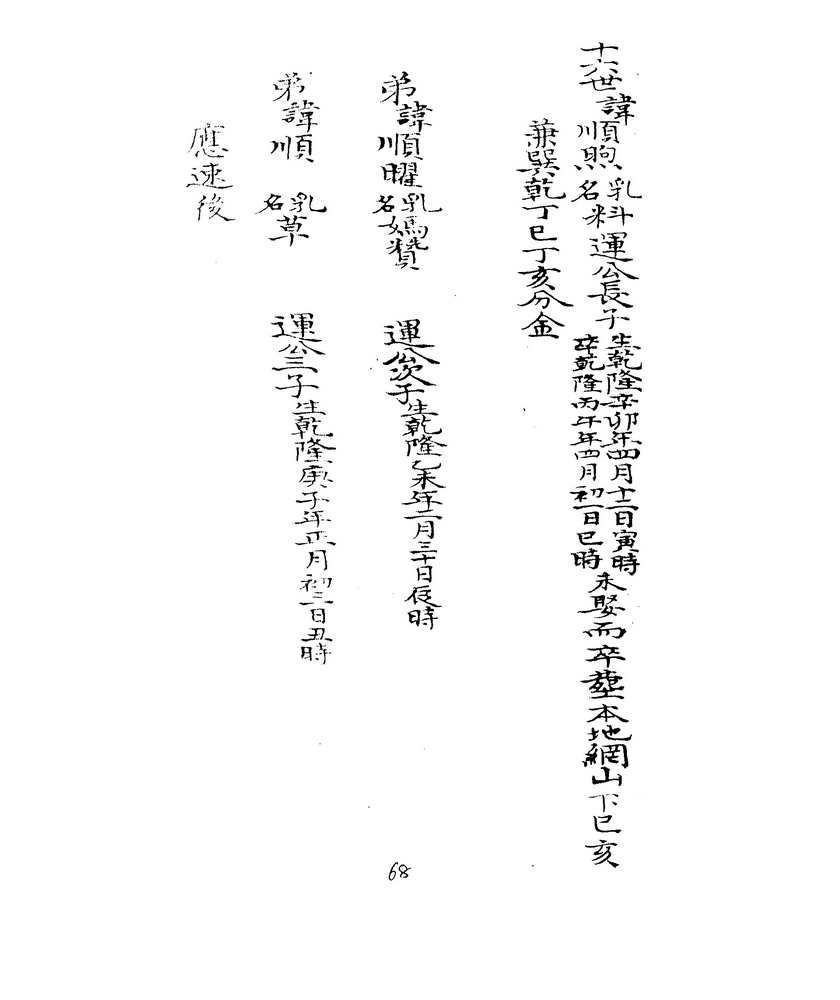 十六世諱順煦乳名料運公長子生乾隆辛卯年四月十二日寅時卒乾隆丙午年四月初一日巳時未娶而卒塟本地網山下巳亥
兼巽乾丁巳丁亥分金
弟諱順曜乳名媽贊運公次子生乾隆乙未年二月三十日辰時
弟諱順 乳名草 運公三子生乾隆庚子年正月初三日丑時
應速後
68